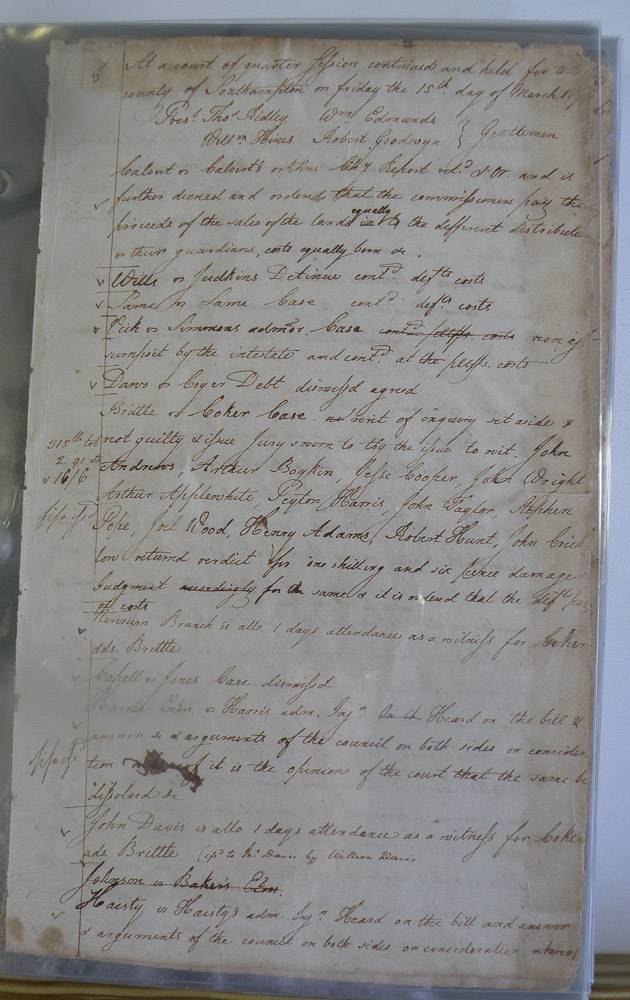 5 At a court of quarter Session continued and held for the
county of Southampton on friday the 15th day of March
Prest. Thos Ridley Wm Edmunds
Willm Hines Robert Goodwyn } Gentlemen
Calvert vs Calvert's orphns Chy Report retd. & Or. and is
further decreed and ordered that the commissioners pay the
proceeds of the sales of the lands equally to the different distributees
or their guardians, costs equally born &c.
Wills vs Judkins Detinue contd. defts costs
Same vs Same Case contd. defts costs
Vick vs Simmons admor. Case contd. pltffs costs non as-
sumpsit by the intestate and contd. at the pltffs. costs
Daws vs Coyer Debt dismissd agreed
Brittle vs Coker Case writ of inquiry set aside &
not guilty & issue Jury sworn to try the issue to wit. John
Andrews, Arthur Boykin, Jesse Cooper, John Wright
Arthur Applewhite Peyton Harris, John Taylor Stephen
Pope, Joel Wood, Henry Adams, Robert Hunt, John Crich
low returnd verdict for one shilling and six pence damages
Judgment accordingly for the same & it is ordered that the deft pay
of costs
315 lb tob
2.
16/6
Branch is allo 1 days attendance as a witness for Coker
ads. Brittle
Capell vs Jones Case dismissd
Harris Exôr. vs Harris adm. Injn Heard on the bill &
answer & arguments of the council on both sides on considera
tion it is the opinion of the court that the same be
dissolved &c
John Davis is allo 1 days attendance as a witness for Coker
ads Brittle (isd to Jno Davis by William Davis
Johnson vs Baker's Exôr.
Haisty vs Haisty's adm. Injn Heard on the bill and answer
& arguments of the council on both sides on consideration whereof